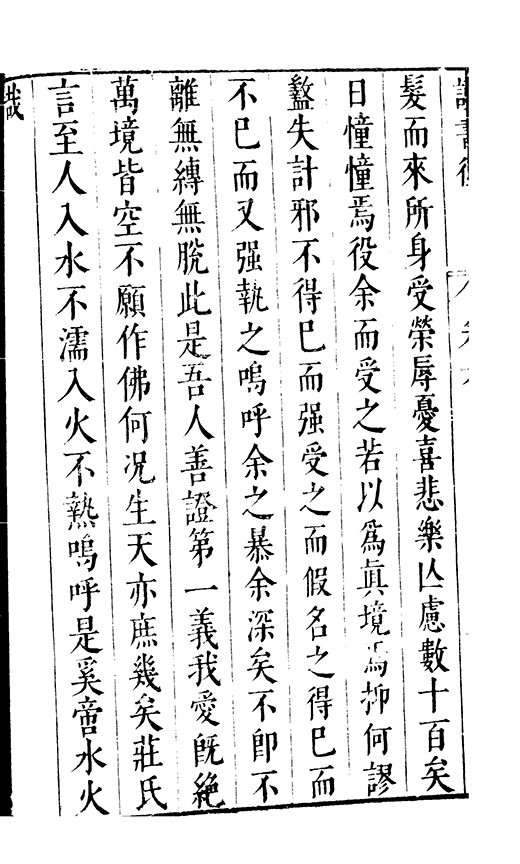 髮而來所身受榮辱憂喜悲樂亾慮數十百矣
日憧憧焉役余而受之若以爲眞境焉抑何謬
盭失計邪不得巳而强受之而假名之得巳而
不巳而又强執之嗚呼余之暴余深矣不卽不
離無縛無脫此是吾人善證第一義我愛旣絶
萬境皆空不願作佛何况生天亦庶幾矣莊氏
言至人入水不濡入火不熱嗚呼是奚啻水火